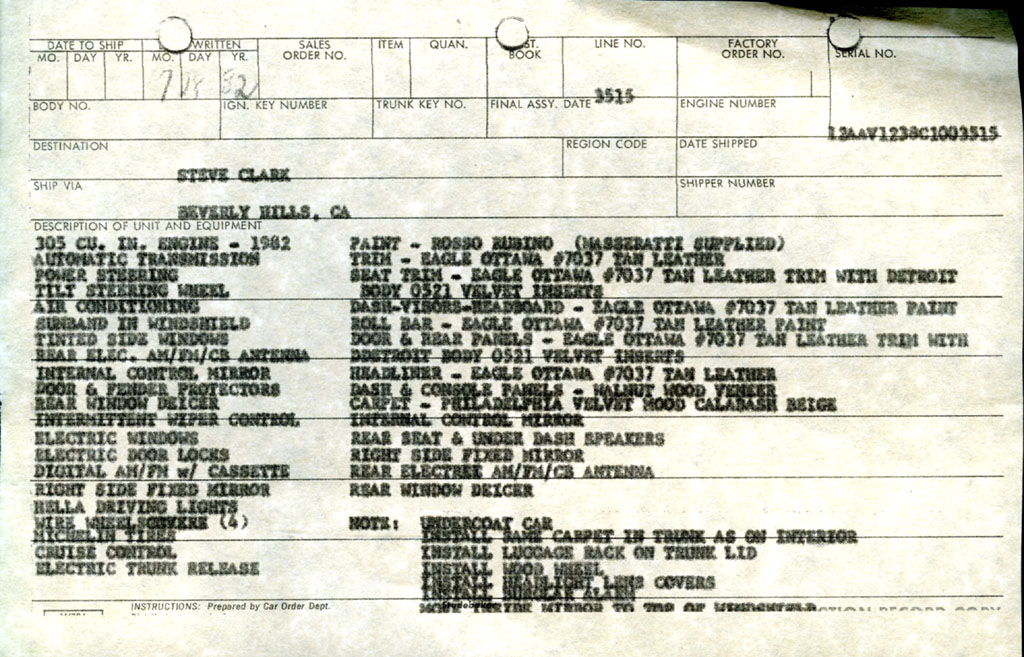 DATE TO SHIP WRITTEN SALES ORDER NO. ITEM QUAN. BOOK LINE NO. FACTORY ORDER NO. SERIAL NO.
MO. DAY YR. MO. DAY YR.
7 82
3515
BODY NO. IGN. KEY NUMBER TRUNK KEY NO. FINAL ASSY. DATE ENGINE NUMBER
12AAV1238C1003515
DESTINATION REGION CODE DATE SHIPPED
STEVE CLARK
SHIP VIA SHIPPER NUMBER
BEVERLY HILLS, CA
DESCRIPTION OF UNIT AND EQUIPMENT
305 CU. IN. ENGINE - 1982 PAINT - ROSSO RUBINO (MASSERATTI SUPPLIED)
AUTOMATIC TRANSMISSION TRIM - EAGLE OTTAWA #7037 TAN LEATHER
POWER STEERING SEAT TRIM - EAGLE OTTAWA #7037 TAN LEATHER TRIM WITH DETROIT
TILT STEERING WHEEL BODY 0521 VELVET INSERTS
AIR CONDITIONING DASH-VISORS-HEADBOARD - EAGLE OTTAWA #7037 TAN LEATHER PAINT
SUNBAND IN WINDSHIELD ROLL BAR - EAGLE OTTAWA #7037 TAN LEATHER PAINT
TINTED SIDE WINDOWS DOOR & REAR PANELS - EAGLE OTTAWA #7037 TAN LEATHER TRIM WITH
REAR ELEC. AM/FM/CB ANTENNA DDETROIT BODY 0521 VELVET INSERTS
INTERNAL CONTROL MIRROR HEADLINER - EAGLE OTTAWA #7037 TAN LEATHER
DOOR & FENDER PROTECTORS DASH & CONSOLE PANELS - WALNUT WOOD VENEER
REAR WINDOW DEICER CARPET - PHILADELPHIA VELVET MOOD CALABASH BEIGE
INTERMITTENT WIPER CONTROL INTERNAL CONTROL MIRROR
ELECTRIC WINDOWS REAR SEAT & UNDER DASH SPEAKERS
ELECTRIC DOOR LOCKS RIGHT SIDE FIXED MIRROR
DIGITAL AM/FM w/ CASSETTE REAR ELECTREE AM/FM/CB ANTENNA
RIGHT SIDE FIXED MIRROR REAR WINDOW DEICER
HELLA DRIVING LIGHTS
WIRE (4) NOTE: UNDERCOAT CAR
MICHELIN TIRES INSTALL SAME CARPET IN TRUNK AS ON INTERIOR
CRUISE CONTROL INSTALL LUGGAGE RACK ON TRUNK LID
ELECTRIC TRUNK RELEASE INSTALL WOOD WHEEL
INSTALL HEADLIGHT LENS COVERS
INSTALL BURGLAR ALARM
INSTRUCTIONS: Prepared by Car Order Dept. Studebaker MIRROR TO TOP OF WINDSHIELD